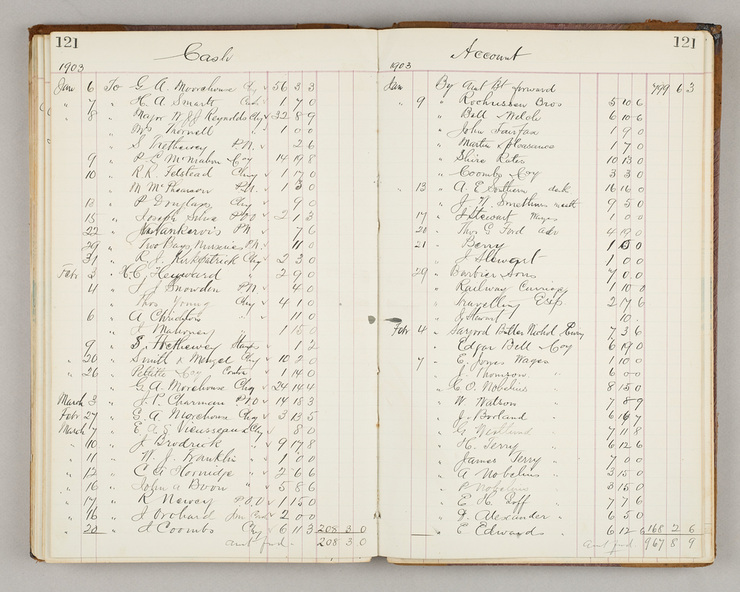 121
Cash
1903
Jan 6 To G A Moorehouse Chq 56 3 3
" 7 " H A Smart Cash 1 7 0
" 8 " Major N J J Reynolds Chq 32 8 9
" Mrs Thornell " 1 0 0
" S Trethewey P.N. 2 6
9 " P. E McMahon Coy 14 19 8
10 " R R Felstead Chq 1 17 0
" M McPhearson P.N. 1 3 0
13 " P Douglass Chq 9 0
15 " Joseph Silva P.O.O 2 1 3
22 " Hankervis P.N 7 6
29 " Two Bays Nurseries P.N. 11 0
31 " R J Kirkpatrick Chq 2 3 0
Feb 2 " H.C. Heyward " 2 9 0
4 " J J Snowden P.N 4 0
" Thos Young Chq 4 1 0
6 " A Chrichton " 11 0
" J Mahoney " 1 15 0
9 " S. Trethewey Stamps 1 2
" 20 " Smith & Chq 10 2 0
" 26 " Coy 1 14 0
" G A Morehouse Chq 24 14 4
March 3 " J. P. Charman P.O.O 14 18 3
Feb 27 " G A Morehouse Chq 3 13 5
March 7 " E & G Vieusseux Chq 8 0
" 10 " J Brodrick " 9 17 8
" 11 " N. J. Franklin " 1 0 0
" 12 " C W Horridge " 2 6 6
" 16 " John A Boon " 5 8 6
" 17 " R Newey P.O.O 1 15 0
" 16 " J Orchard 2 0 0
" 20 " J Coombs Chq 6 11 3 208 3 0
amt fwd. 208 3 0
121
Account
1903
Jan By Amt Bt forward 799 6 3
" 9 " Rochussen Bros 5 10 6
" Bell Welch 6 10 6
" John Fairfax 1 9 0
" Martin & Pleasance 1 7 0
" Shire Rates 10 13 0
" Coombs Coy 3 3 0
" 13 " A. E. desk 16 16 0
" 9 5 0
17 " J Stewart Wages 1 0 0
20 " Thos G Ford adv 4 19 0
21 " Berry 1 15 0
" J Stewart 1 0 0
29 " Barbier Sons 7 0 0
" Railway Carriage 1 10 0
" Travelling Exps 2 17 6
" J Stewart 10
Feb 4 " 7 3 6
" Edgar Bell Coy 6 19 0
" 7 " E. Jones Wages 1 10 0
" J. Thomson " 6 0 0
" C O Nobelius " 8 15 0
" W Watson " 7 8 9
" J. Borland " 6 16 7
" G Westlund " 7 11 8
" H. Terry " 6 12 6
" James Terry " 7 0 0
" A Nobelius " 3 15 0
" P. Nobelius " 3 15 0
" E H Goff " 7 7 6
" G. Alexander " 6 5 0
" E Edwards " 6 12 6 168 2 6
amt fwd. 967 8 9